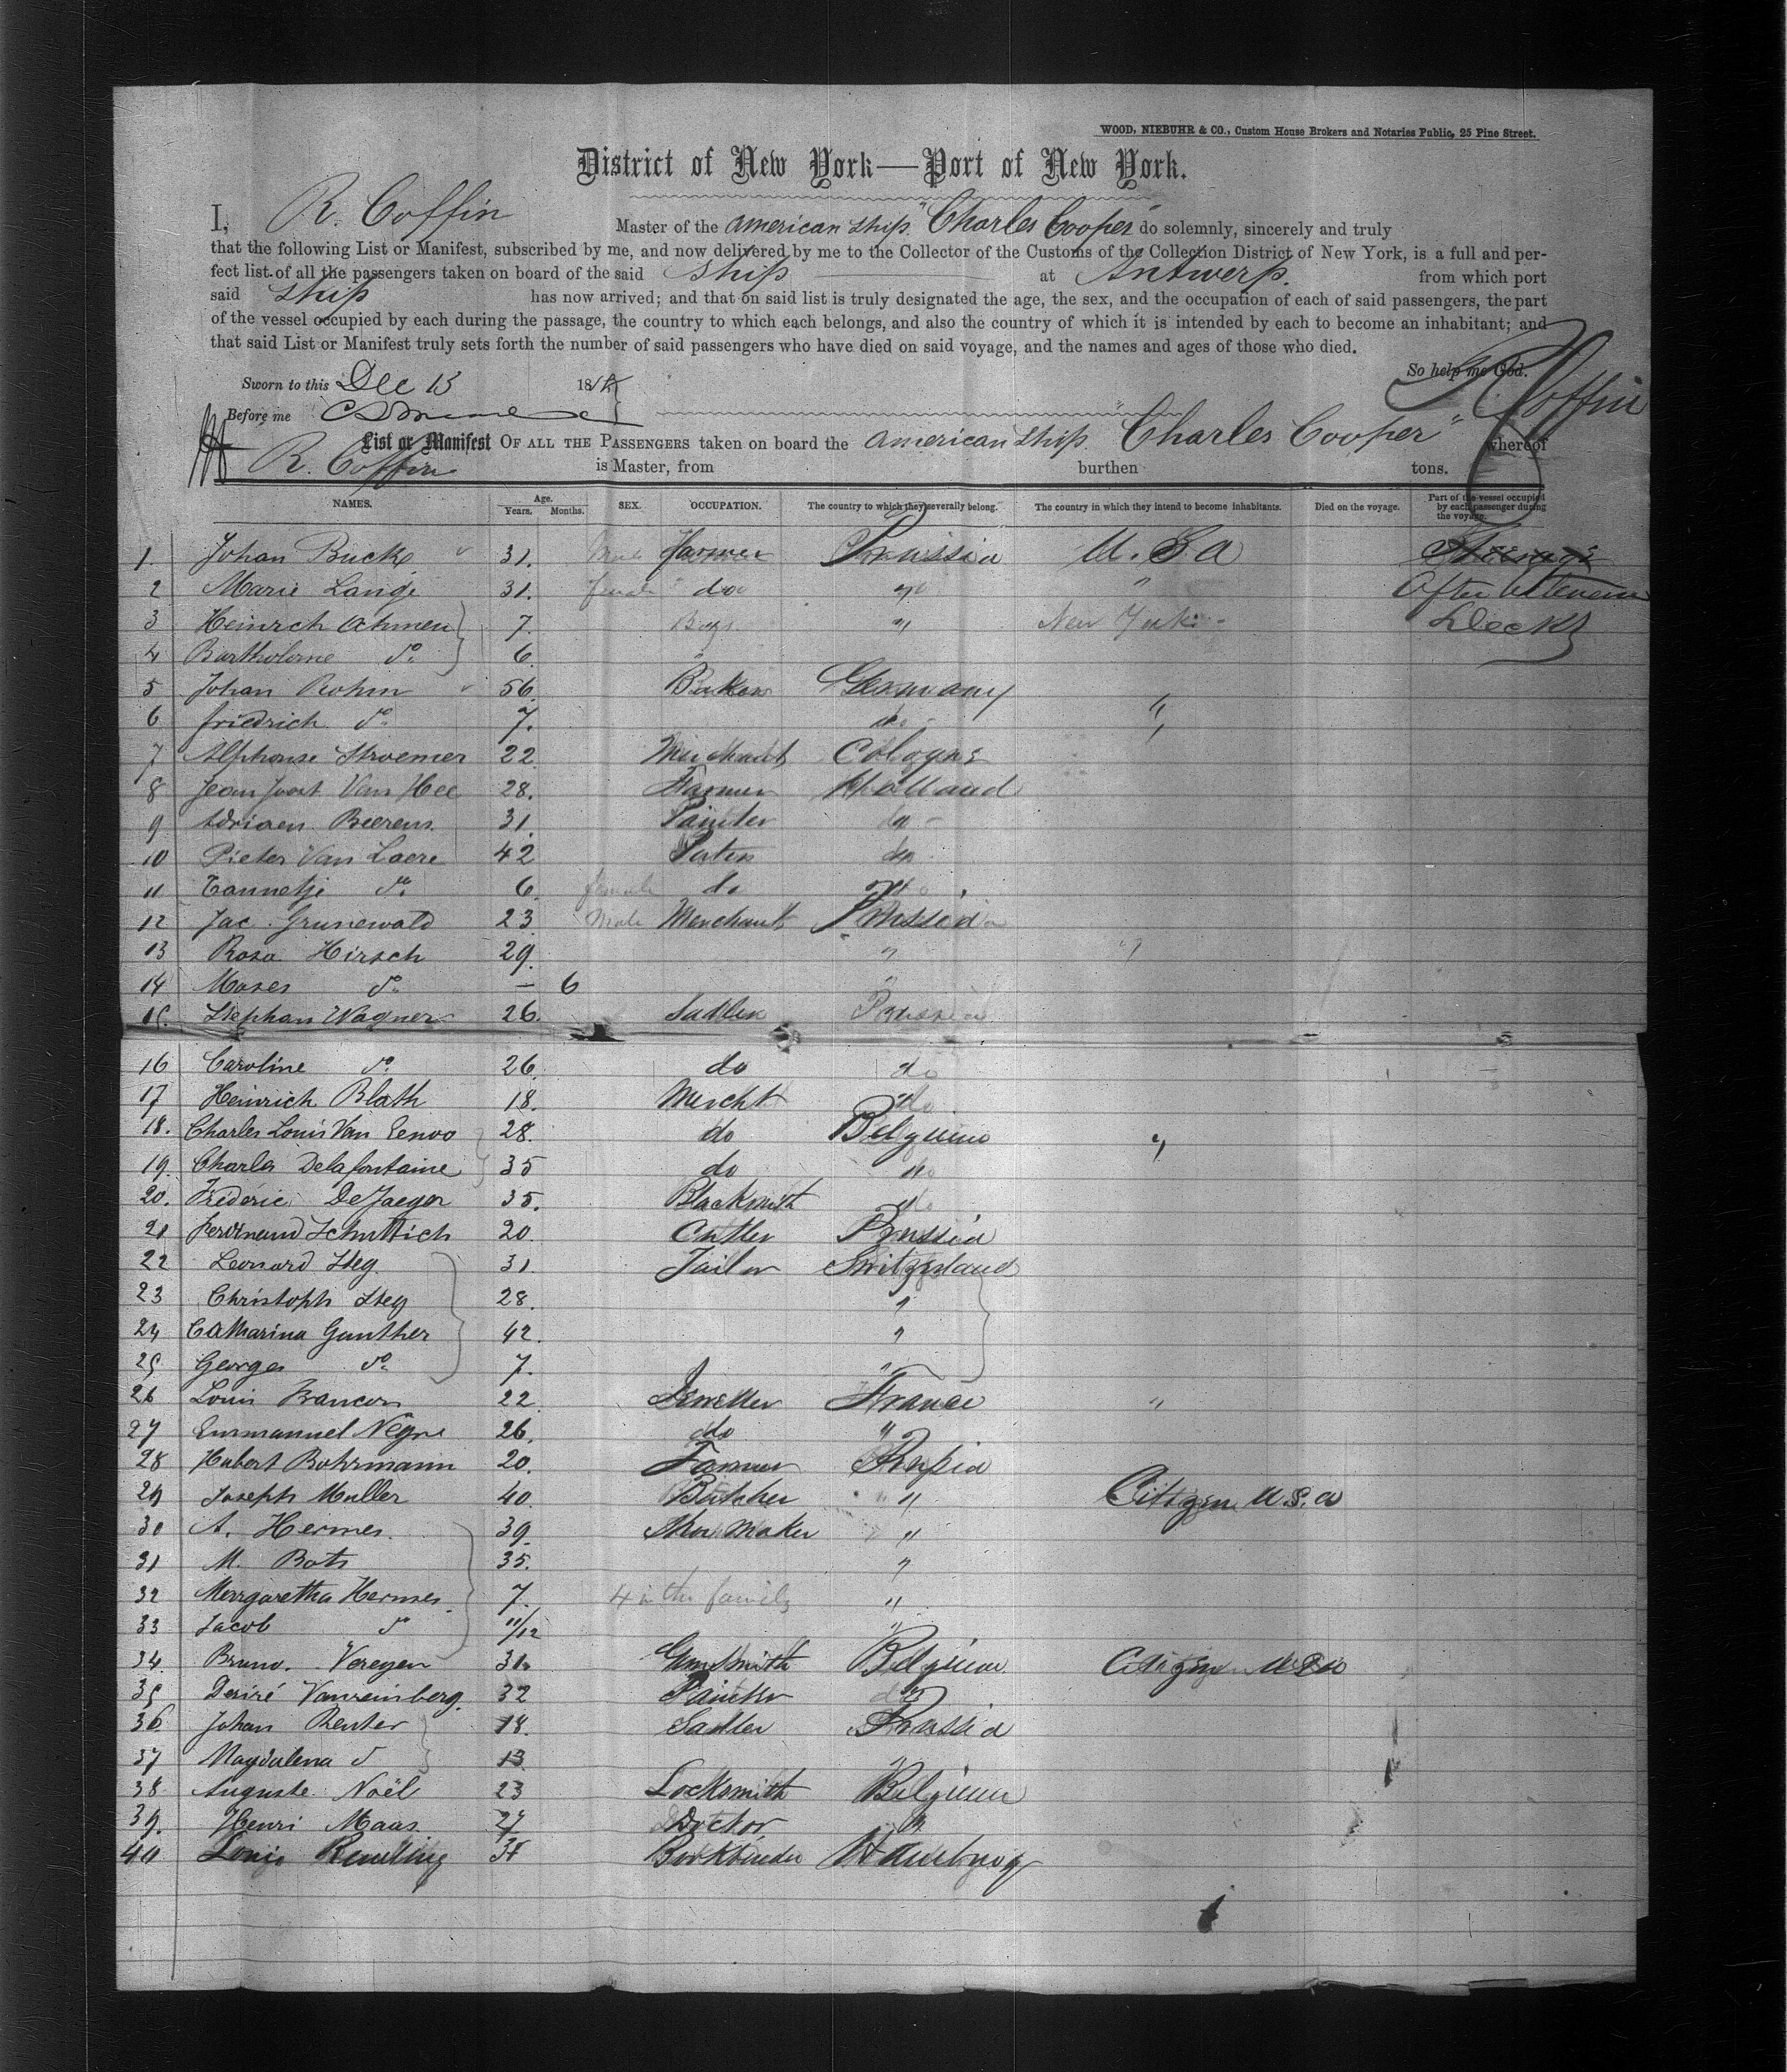 WOOD, NIEBUHR & CO., Custom House Brokers and Notaries Public, 25 Pine Street.
District of New York—Port of New York.
I, R. Coffin Master of the American ship "Charles Cooper" do solemnly, sincerely and truly
that the following List or Manifest, subscribed by me, and now delivered by me to the Collector of the Customs of the Collection District of New York, is a full and per-
fect list of all the passengers taken on board of the said Ship at Antwerp. from which port
said Ship has now arrived; and that on said list is truly designated the age, the sex, and the occupation of each of said passengers, the part
of the vessel occupied by each during the passage, the country to which each belongs, and also the country of which it is intended by each to become an inhabitant; and
that said List or Manifest truly sets forth the number of said passengers who have died on said voyage, and the names and ages of those who died.
So help me God.
Sworn to this Dec 13 18
Before me
R Coffin
List or Manifest OF ALL THE PASSENGERS taken on board the American ship "Charles Cooper" whereof
R. Coffin is Master, from burthen tons.
NAMES. Age. Years. Months. SEX. OCCUPATION. The country to which they severally belong. The country in which they intend to become inhabitants. Died on the voyage. Part of the vessel occupied by each passenger during the voyage.
1. Johan Bucke 31. Male Farmer Prussia U.S.A Steerage
2 Marie Lange 31. female do " " After between
3 Heinrich Achmen 7. Boys " New York Decks
4 Bartholome do 6.
5 Johan Rohm 56. Baker Germany "
6 Friedrich do 7. do "
7 Alphonse Stroemer 22 Merchant Cologne
8 Jean Joost Van Hee 28. Farmer Holland
9 Adriaen Beerens 31. Painter do
10 Pieter Van Laere 42 do
11 Tannetje do 6. female do do
12 Jac. Grunewald 23. Male Merchant Prussia
13 Rosa Hirsch 29. " "
14 Moses do — 6 "
15. Stephan Wagner 26. Sadler Prussia
16 Caroline do 26. do do
17 Heinrich Blath 18. Mercht do
18. Charles Louis Van Eenoo 28. do Belgium "
19. Charles Delafontaine 35 do do
20. Frederic De Jaeger 35. Blacksmith do
21 Ferdinand Schuttich 20. Cutler Prussia
22 Leonard Steg 31. Tailor Switzerland
23 Christoph Steg 28. "
24 Catharina Gunther 42. "
25 Georges do 7. "
26 Louis Brancon 22. Jeweller France "
27 Emmanuel Nègre 26. do "
28 Hubert Bohrmann 20. Farmer Prussia
29 Joseph Muller 40. Butcher " Citizen U.S.A
30 A. Hermes 39. Shoe Maker "
31 M. Bots 35. "
32 Margaretha Hermes 7. 4 in the family "
33 Jacob do 11/12 "
34. Bruno. Vereyen 31. Gunsmith Belgium Citizen USA
35 Desiré Vanreinberg. 32 Painter do
36 Johan Reuter 18. Sadler Prussia
37 Magdalena do 13 "
38 Auguste Noël 23 Locksmith Belgium
39. Henri Maas 27 Doctor "
40 Louis Bookbinder Hamburg